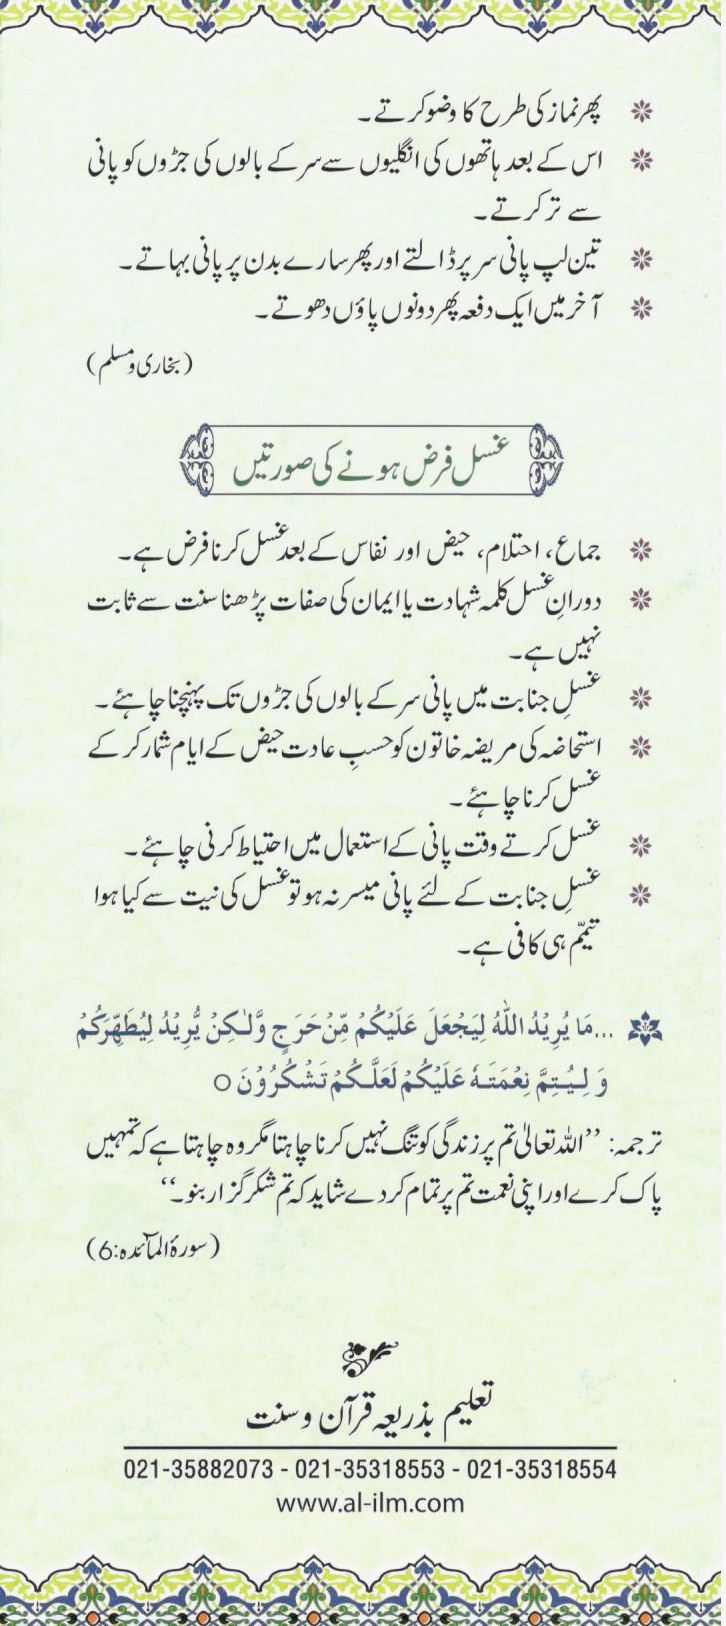 پھر نماز کی طرح کا وضو کرتے۔
اس کے بعد ہاتھوں کی انگلیوں سے سر کے بالوں کی جڑوں کو پانی
سے تر کرتے۔
تین لپ پانی سر پر ڈالتے اور پھر سارے بدن پر پانی بہاتے۔
آخر میں ایک دفعہ پھر دونوں پاؤں دھوتے۔
(بخاری و مسلم)
غسل فرض ہونے کی صورتیں
جماع، احتلام، حیض اور نفاس کے بعد غسل کرنا فرض ہے۔
دورانِ غسل کلمہ شہادت یا ایمان کی صفات پڑھنا سنت سے ثابت
نہیں ہے۔
غسلِ جنابت میں پانی سر کے بالوں کی جڑوں تک پہنچنا چاہئے۔
استحاضہ کی مریضہ خاتون کو حسبِ عادت حیض کے ایام شمار کر کے
غسل کرنا چاہئے۔
غسل کرتے وقت پانی کے استعمال میں احتیاط کرنی چاہئے۔
غسلِ جنابت کے لئے پانی میسر نہ ہو تو غسل کی نیت سے کیا ہوا
تیمّم ہی کافی ہے۔
...مَا یُرِیْدُ اللّٰہُ لِیَجْعَلَ عَلَیْکُمْ مِّنْ حَرَجٍ وَّلٰکِنْ یُّرِیْدُ لِیُطَھِّرَکُمْ
وَ لِیُتِمَّ نِعْمَتَہٗ عَلَیْکُمْ لَعَلَّکُمْ تَشْکُرُوْنَ ○
ترجمہ: ’’اللہ تعالیٰ تم پر زندگی کو تنگ نہیں کرنا چاہتا مگر وہ چاہتا ہے کہ تمہیں
پاک کرے اور اپنی نعمت تم پر تمام کر دے شاید کہ تم شکر گزار بنو۔‘‘
(سورۃ المآئدہ:6)
تعلیم بذریعہ قرآن و سنت
021-35882073 - 021-35318553 - 021-35318554
www.al-ilm.com